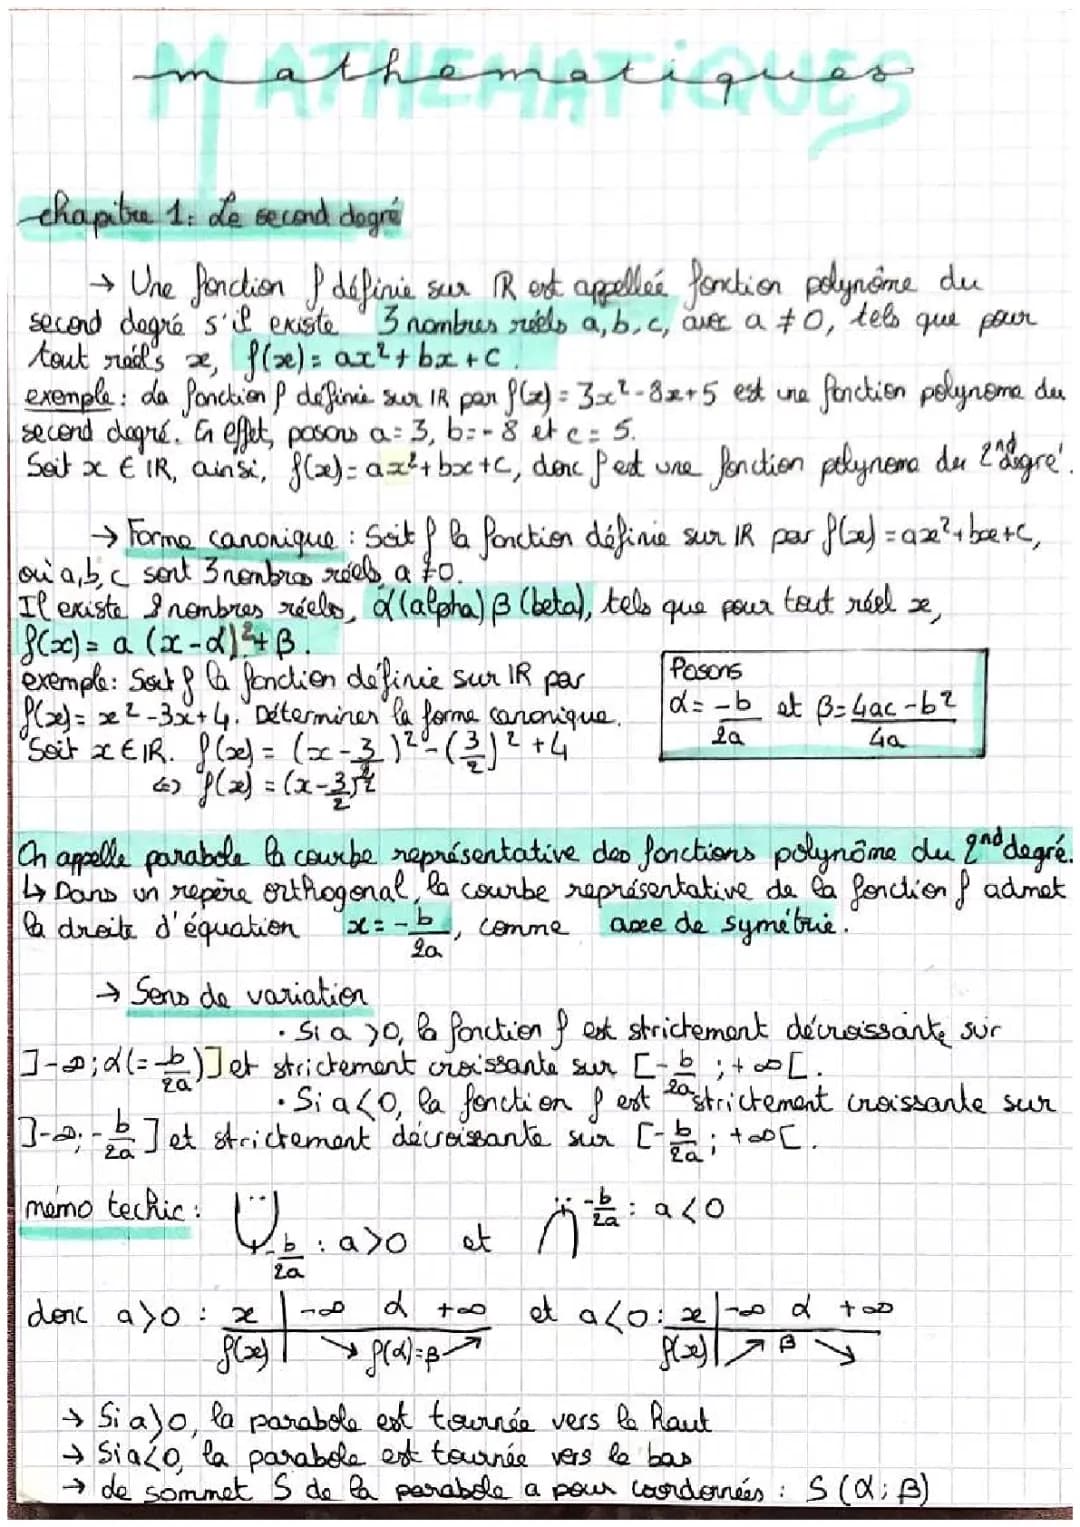 MATHEMATIQUES
mathematiques
chapitre 1: Le second degré
→ Une fonction f définie sur IR est appelleé fonction polynôme du
second degré s'il existe 3 nombres réels a, b, c, avec a ≠ 0, tels que pour
tout réels x, f(x) = ax² + bx + c.
exemple: La fonction f définie sur IR par f(x) = 3x² - 8x + 5 est une fonction polynome du
second degré. En effet, posons a = 3, b = -8 et c = 5.
Soit x ∈ IR, ainsi, f(x) = ax² + bx + c, donc f est une fonction polynome du 2nd degré.
→ Forme canonique : Soit f la fonction définie sur IR par f(x) = ax² + bx + c,
où a, b, c sont 3 nombres réels a ≠ 0.
Il existe 2 nombres réels, α (alpha) β (beta), tels que pour tout réel x,
f(x) = a (x - α)² + β.
exemple: Soit f la fonction définie sur IR par
f(x) = x² - 3x + 4. Déterminer la forme canonique.
Soit x ∈ IR. f(x) = (x - 3/2)² - (3/2)² + 4
⇔ f(x) = (x - 3/2)²
Posons
α = -b/2a et β = 4ac - b²/4a
On appelle parabole la courbe représentative des fonctions polynôme du 2nd degré.
↳ Dans un repère orthogonal, la courbe représentative de la fonction f admet
la droite d'équation x = -b/2a, comme axe de symétrie.
→ Sens de variation
• Si a > 0, la fonction f est strictement décroissante sur
]-∞; α(= -b/2a)] et strictement croissante sur [-b/2a ; +∞[.
• Si a < 0, la fonction f est strictement croissante sur
]-∞; -b/2a] et strictement décroissante sur [-b/2a ; +∞[.
mémo techic : -b/2a : a > 0 et -b/2a : a < 0
donc a > 0 : x | -∞ α +∞ et a < 0 : x | -∞ α +∞
f(x) | ↘ f(α) = β ↗ f(x) | ↗ β ↘
→ Si a > 0, la parabole est tournée vers le haut
→ Si a < 0, la parabole est tournée vers le bas
→ de sommet S de la parabole a pour coordonnées : S (α ; β)